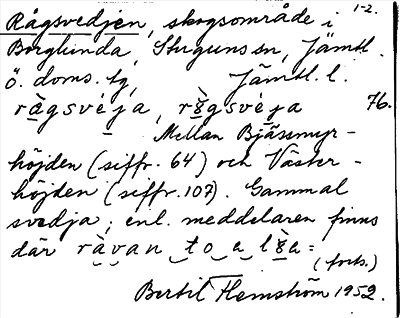 Rågsvedjen, skogsområde i 1-2.
Borglunda, Stuguns sn, Jämtl.
ö. doms. tg, Jämtl. l.
ràgsvéja, rògsvéja 76.
Mellan Bjässmyr-
höjden (siffr. 64) och Väster-
höjden (siffr. 107). Gammal
svedja; enl. meddelaren finns
där ràvan
(forts.)
Bertil Flemström 1952.